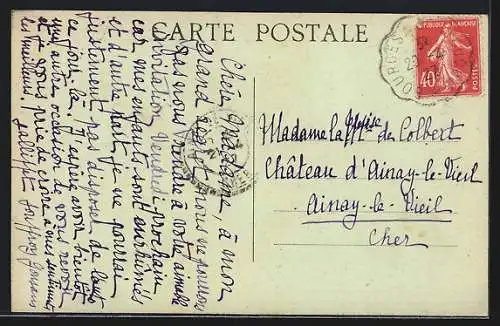 CARTE POSTALE
Chère Madame, à mon
grand regret nous ne pouvons
pas nous rendre à votre aimable
invitation Vendredi prochain
car mes enfants sont enrhumés
et d'autre part je ne pourrai
justement pas disposer de l'auto
ce jour là, j'espère avoir bientôt
une autre occasion de vous revoir
et je vous prie de croire à mes sentiments
les meilleurs.
BOURGES
RÉPUBLIQUE FRANÇAISE
40c
Madame la Mise de Colbert
Château d'Ainay-le-Vieil
Ainay-le-Vieil
Cher